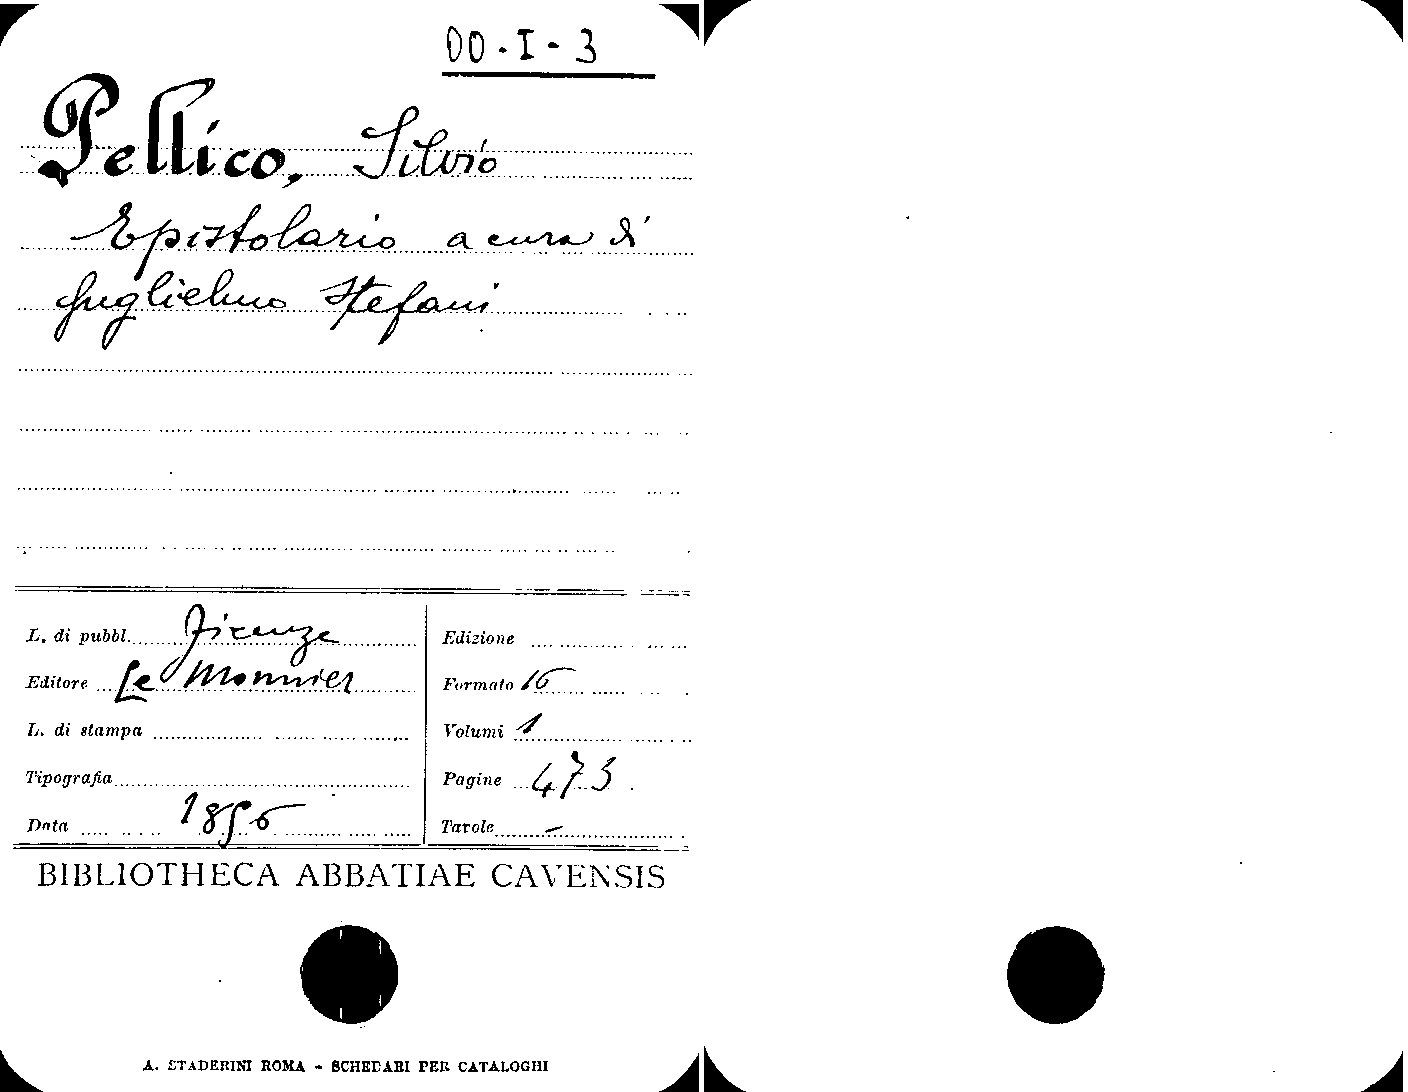 OO-I-3
Pellico, Silvio
Epistolario a cura di
Guglielmo Stefani
L. di pubbl. Firenze
Editore Le Monnier
L. di stampa
Tipografia
Data 1856
Edizione
Formato 16
Volumi 1
Pagine 473
Tavole -
BIBLIOTHECA ABBATIAE CAVENSIS
A. STADERINI ROMA - SCHEDARI PER CATALOGHI